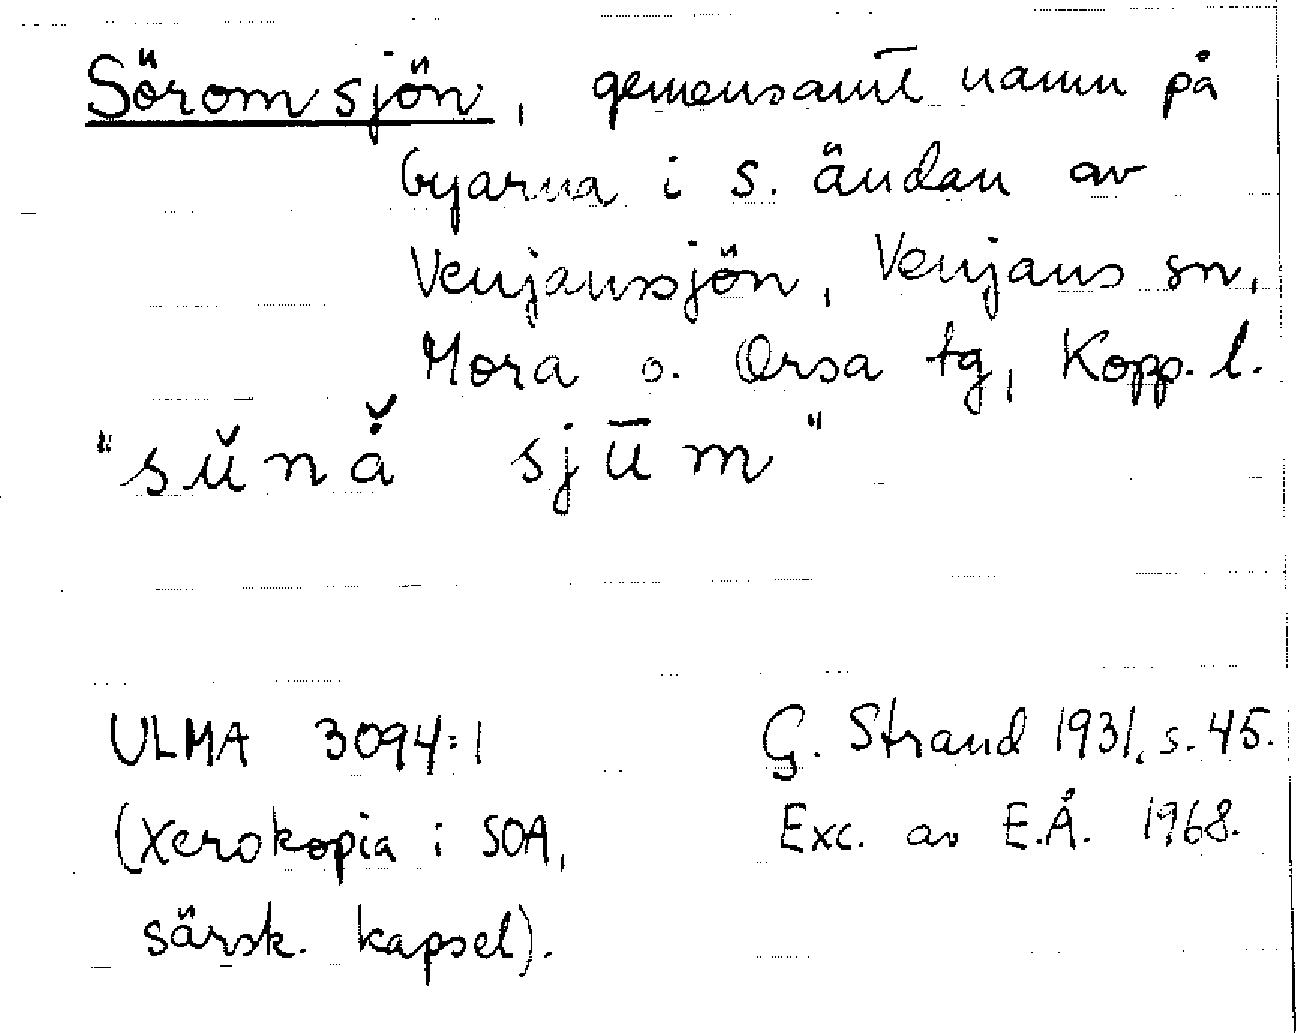 Söromsjön, gemensamt namn på
byarna i s. ändan av
Venjanssjön, Venjans sn,
Mora o. Orsa tg, Kopp. l.
"sŭnå̆ sjūm"
ULMA 3094:1 G. Strand 1931, s. 45.
(Xerokopia i SOA, Exc. av E.Å. 1968.
särsk. kapsel).